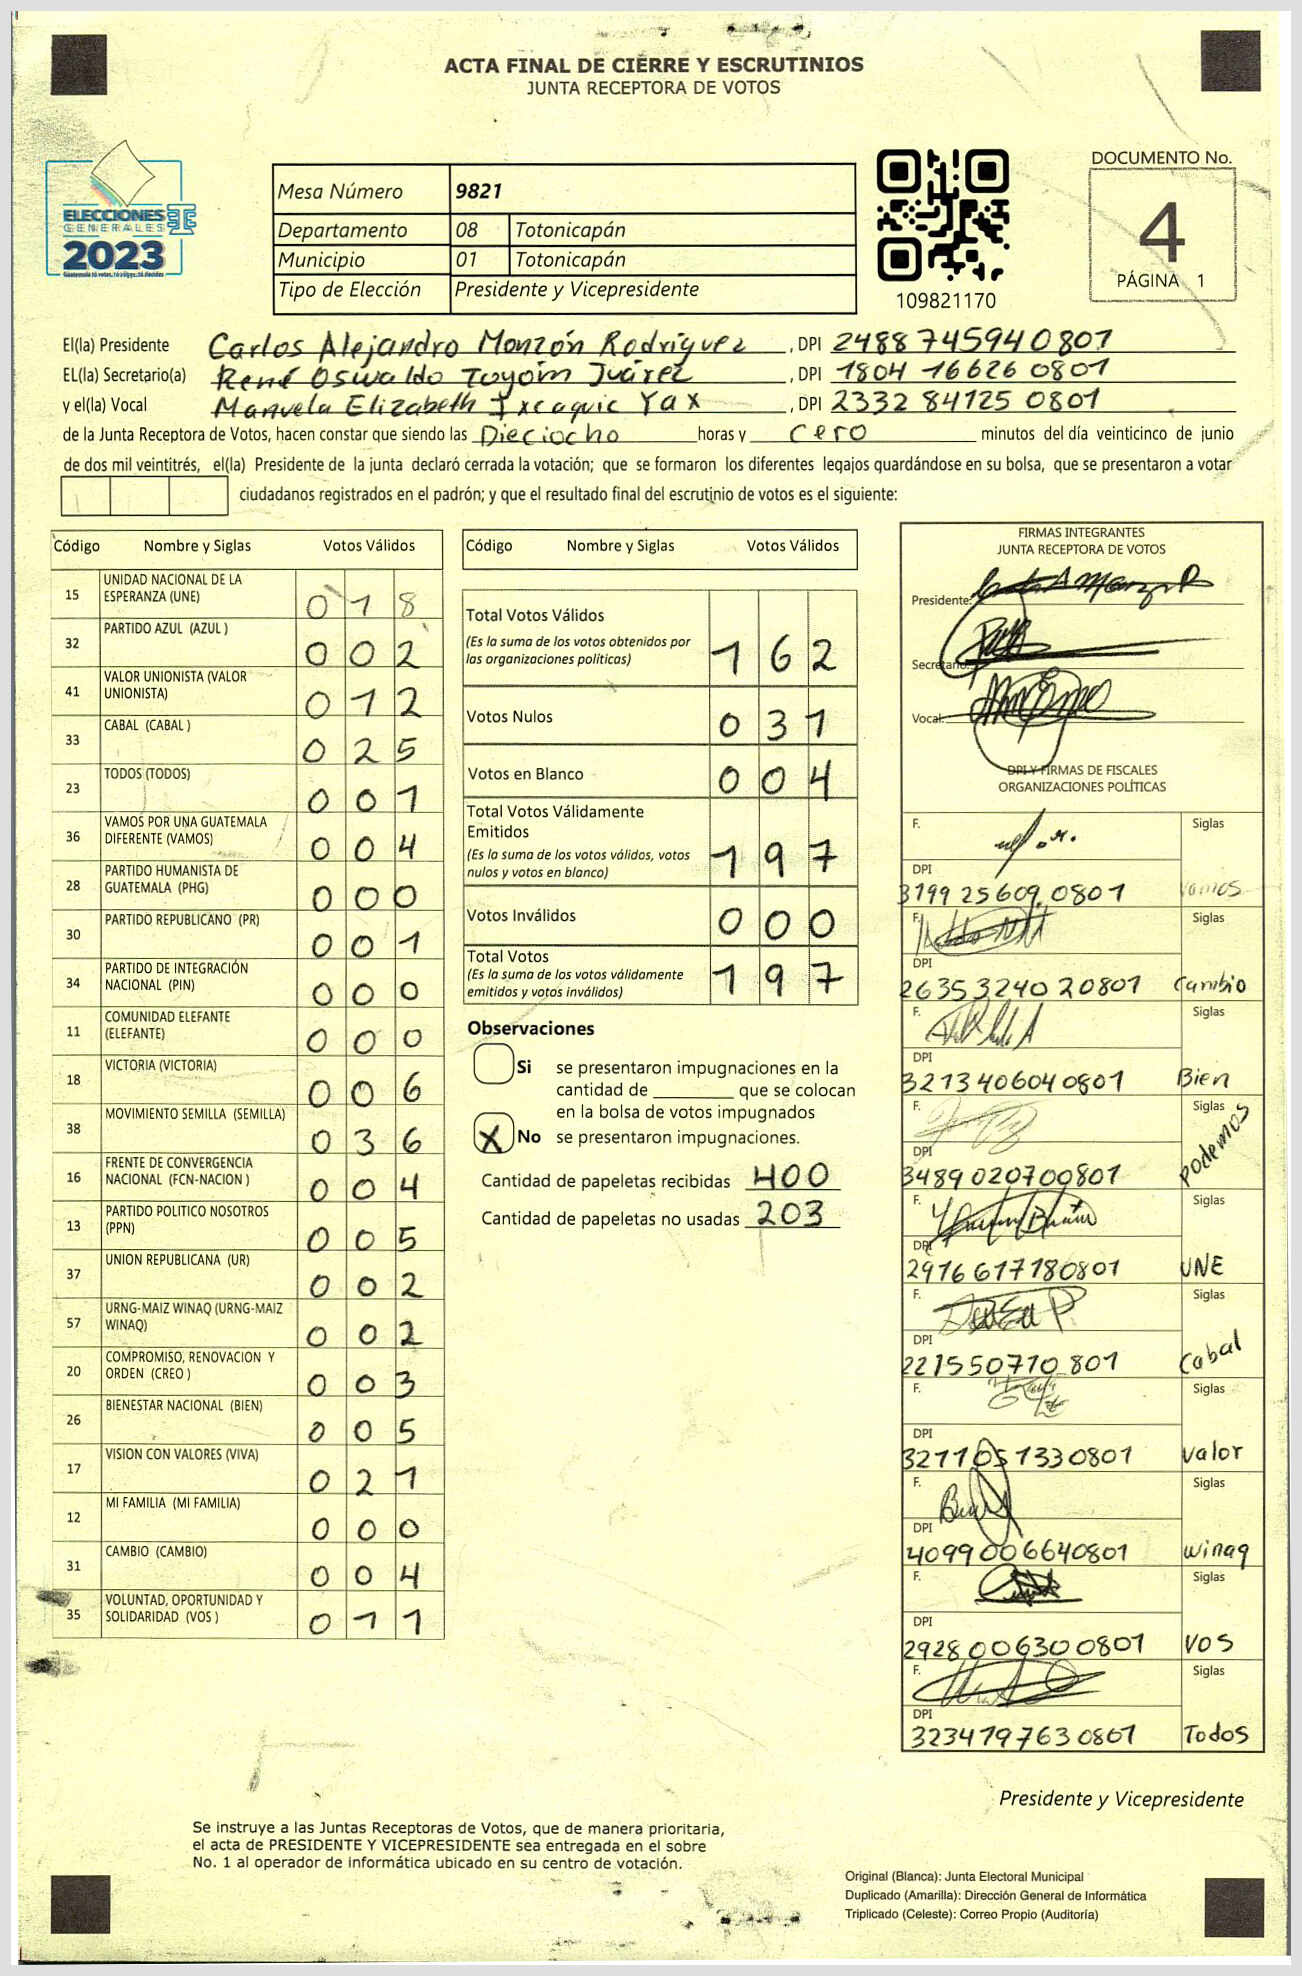 ACTA FINAL DE CIERRE Y ESCRUTINIOS
JUNTA RECEPTORA DE VOTOS
ELECCIONES
GENERALES
2023
Mesa Número 9821
Departamento 08 Totonicapán
Municipio 01 Totonicapán
Tipo de Elección Presidente y Vicepresidente
109821170
DOCUMENTO No.
4
PÁGINA 1
El(la) Presidente Carlos Alejandro Monzón Rodríguez, DPI 2488 74594 0801
EL(la) Secretario(a) René Oswaldo Toyom Juárez, DPI 1804 16626 0801
y el(la) Vocal Manuela Elizabeth Ixcaquic Yax, DPI 2332 84125 0801
de la Junta Receptora de Votos, hacen constar que siendo las Dieciocho horas y cero minutos del día veinticinco de junio
de dos mil veintitrés, el(la) Presidente de la junta declaró cerrada la votación; que se formaron los diferentes legajos guardándose en su bolsa, que se presentaron a votar
ciudadanos registrados en el padrón; y que el resultado final del escrutinio de votos es el siguiente:
Código Nombre y Siglas Votos Válidos
15 UNIDAD NACIONAL DE LA
ESPERANZA (UNE) 018
32 PARTIDO AZUL (AZUL ) 002
41 VALOR UNIONISTA (VALOR
UNIONISTA) 012
33 CABAL (CABAL ) 025
23 TODOS (TODOS) 001
36 VAMOS POR UNA GUATEMALA
DIFERENTE (VAMOS) 004
28 PARTIDO HUMANISTA DE
GUATEMALA (PHG) 000
30 PARTIDO REPUBLICANO (PR) 001
34 PARTIDO DE INTEGRACIÓN
NACIONAL (PIN) 000
11 COMUNIDAD ELEFANTE
(ELEFANTE) 000
18 VICTORIA (VICTORIA) 006
38 MOVIMIENTO SEMILLA (SEMILLA) 036
16 FRENTE DE CONVERGENCIA
NACIONAL (FCN-NACION ) 004
13 PARTIDO POLITICO NOSOTROS
(PPN) 005
37 UNION REPUBLICANA (UR) 002
57 URNG-MAIZ WINAQ (URNG-MAIZ
WINAQ) 002
20 COMPROMISO, RENOVACION Y
ORDEN (CREO ) 003
26 BIENESTAR NACIONAL (BIEN) 005
17 VISION CON VALORES (VIVA) 021
12 MI FAMILIA (MI FAMILIA) 000
31 CAMBIO (CAMBIO) 004
35 VOLUNTAD, OPORTUNIDAD Y
SOLIDARIDAD (VOS ) 011
Código Nombre y Siglas Votos Válidos
Total Votos Válidos
(Es la suma de los votos obtenidos por
las organizaciones politicas) 162
Votos Nulos 031
Votos en Blanco 004
Total Votos Válidamente
Emitidos
(Es la suma de los votos válidos, votos
nulos y votos en blanco) 197
Votos Inválidos 000
Total Votos
(Es la suma de los votos válidamente
emitidos y votos inválidos) 197
Observaciones
Si se presentaron impugnaciones en la
cantidad de ________ que se colocan
en la bolsa de votos impugnados
X No se presentaron impugnaciones.
Cantidad de papeletas recibidas 400
Cantidad de papeletas no usadas 203
FIRMAS INTEGRANTES
JUNTA RECEPTORA DE VOTOS
Presidente:
Secretario:
Vocal:
DPI Y FIRMAS DE FISCALES
ORGANIZACIONES POLÍTICAS
F. Siglas
DPI
3199 25609 0801 Vamos
F. Siglas
DPI
26353240 20801 Cambio
F. Siglas
DPI
3213406040801 Bien
F. Siglas
DPI
3489020700801 Podemos
F. Siglas
DPI
2916617180801 UNE
F. Siglas
DPI
221550710 801 Cabal
F. Siglas
DPI
3211051330801 Valor
F. Siglas
DPI
4099006640801 Winaq
F. Siglas
DPI
2928006300801 VOS
F. Siglas
DPI
3234197630801 Todos
Presidente y Vicepresidente
Se instruye a las Juntas Receptoras de Votos, que de manera prioritaria,
el acta de PRESIDENTE Y VICEPRESIDENTE sea entregada en el sobre
No. 1 al operador de informática ubicado en su centro de votación.
Original (Blanca): Junta Electoral Municipal
Duplicado (Amarilla): Dirección General de Informática
Triplicado (Celeste): Correo Propio (Auditoría)